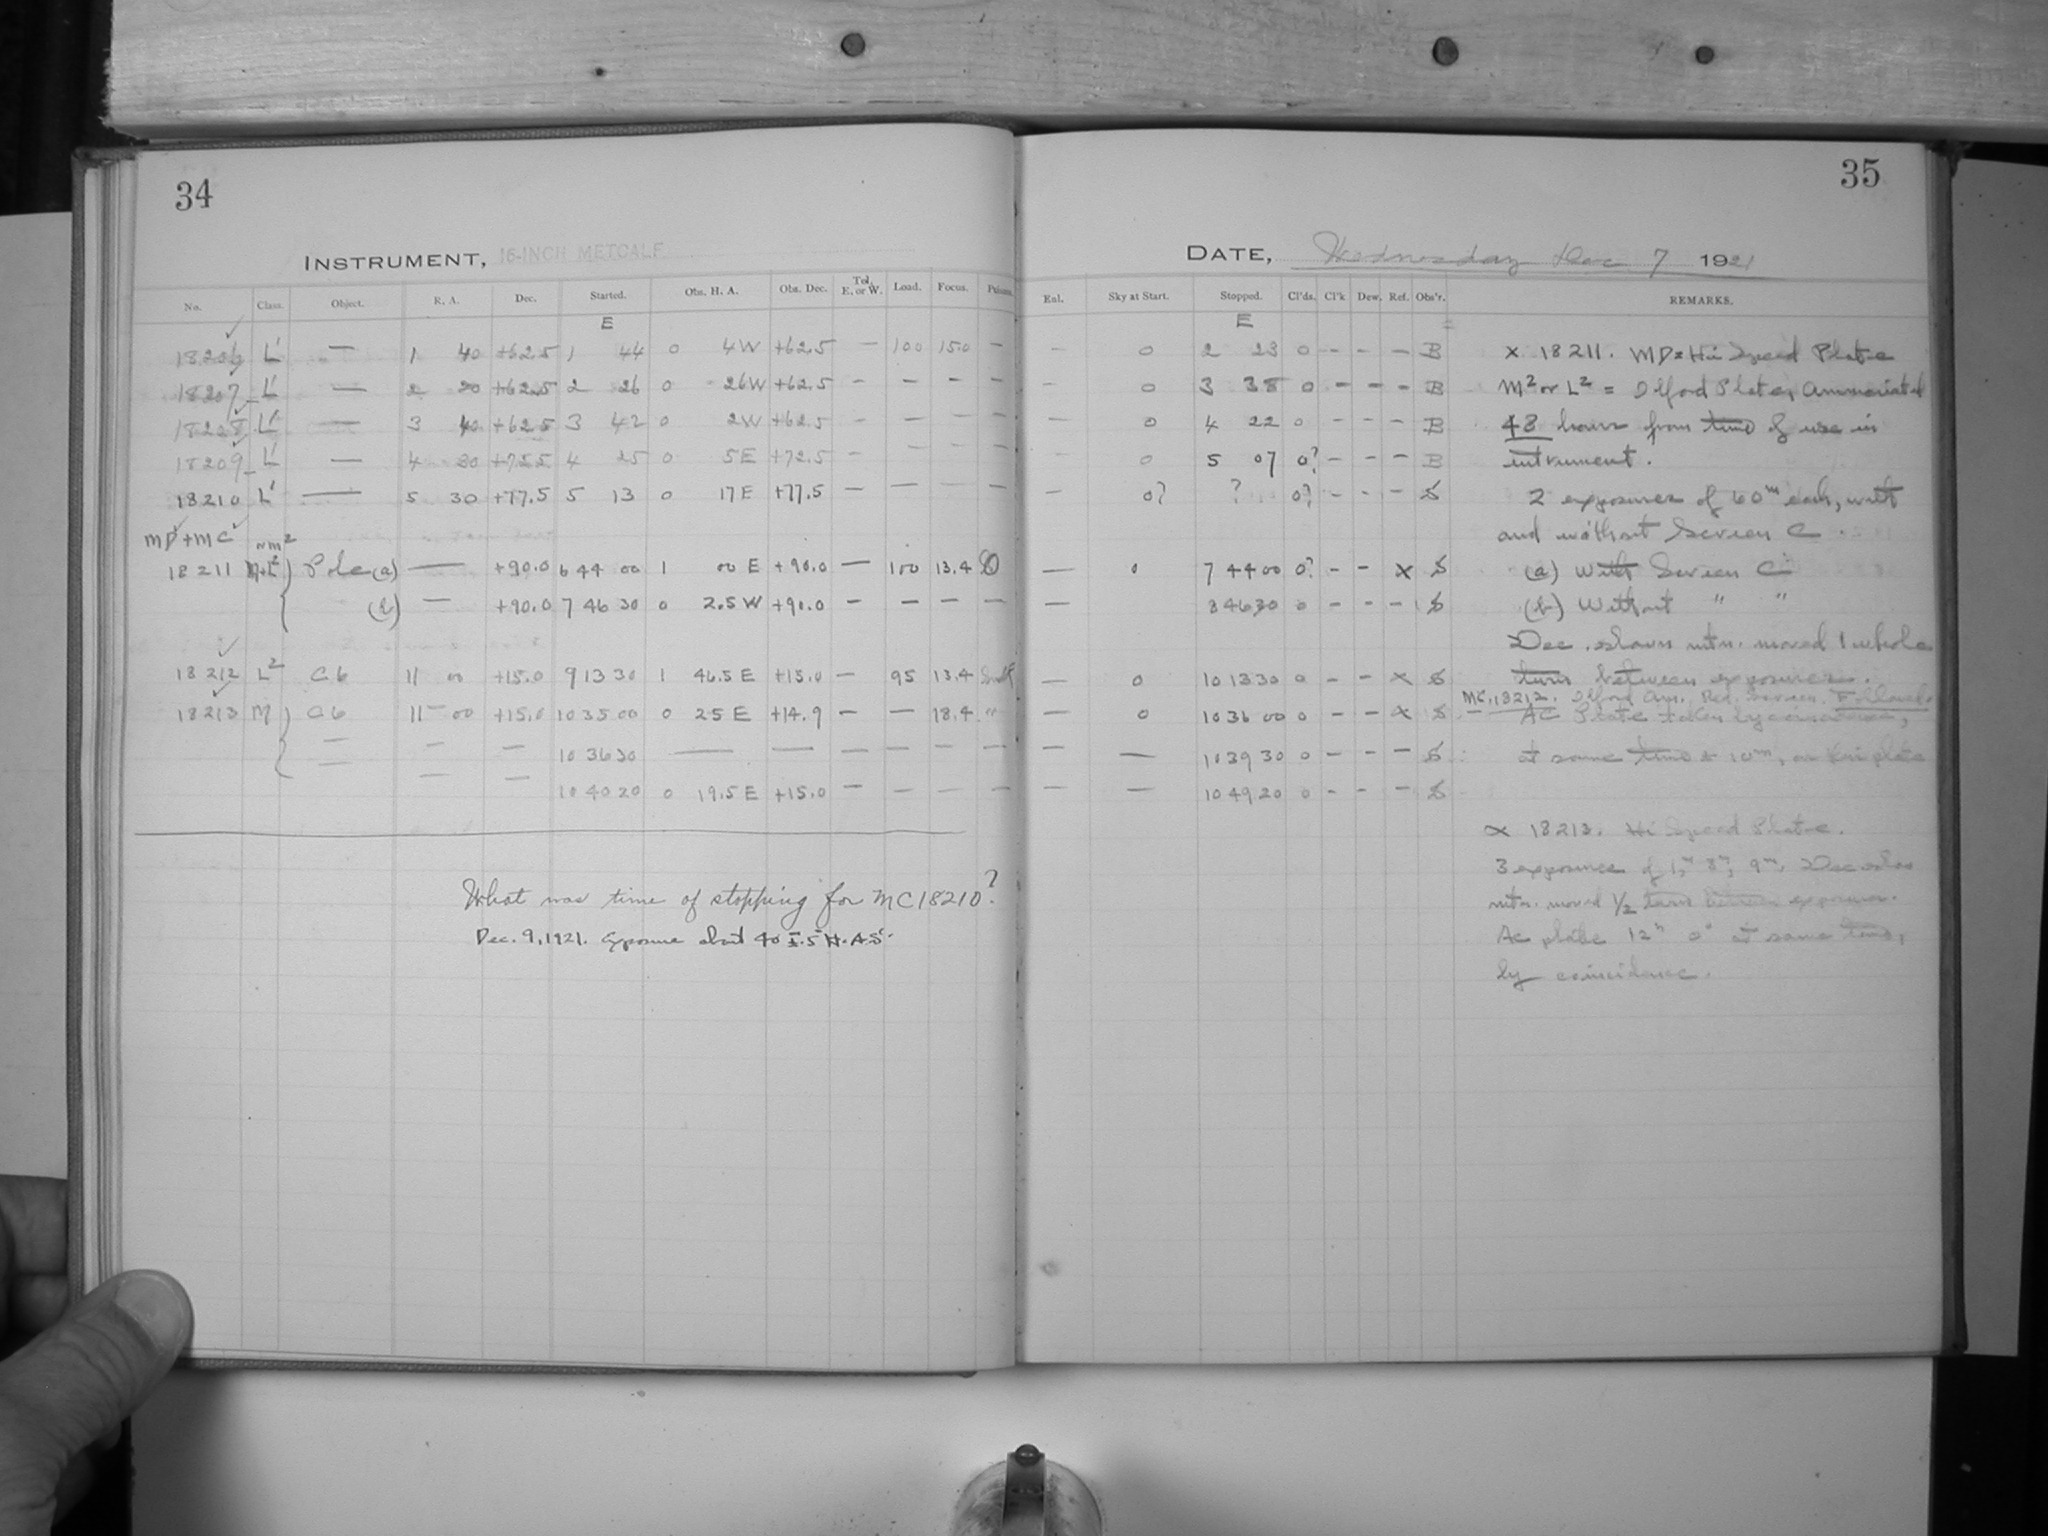 34
INSTRUMENT, 16-INCH METCALF
No. Class. Object. R. A. Dec. Started. Obs. H. A. Obs. Dec. Tel. E. or W. Load. Focus.
E
18206 L' — 1 40 +62.5 1 44 0 4W +62.5 — 100 150 —
18207 L' — 2 20 +62.5 2 26 0 26W +62.5 — — — —
18208 L' — 3 40 +62.5 3 42 0 2W +62.5 — — — —
18209 L' — 4 30 4 25 0 5E +72.5 — — — —
18210 L' — 5 30 +77.5 5 13 0 17E +77.5 — — — —
MD+MC
18211 Pole (a) — +90.0 6 44 00 1 00 E +90.0 — 100 13.4
(b) — +90.0 7 46 30 0 2.5 W +90.0 — — — —
18212 L2 C6 11 00 +15.0 9 13 30 1 46.5 E +15.0 — 95 13.4
18213 M C6 11 00 +15.0 10 35 00 0 25 E +14.9 — — 18.4 "
— — — 10 36 30 — — — — — —
— — — 10 40 20 0 19.5 E +15.0 — — — —
What was time of stopping for MC18210?
Dec. 9, 1921. Exposure about 40
35
DATE, Wednesday Dec 7 1921
Enl. Sky at Start. Stopped. Cl'ds. Cl'k Dew. Ref. Obs'r. REMARKS.
E
— 0 2 23 0 - - - B x 18211. MD = Hi Speed Plate
— 0 3 38 0 - - - B M2 or L2 = Ilford Plates Ammoniated
— 0 4 22 0 - - - B 48 hours from time of use in
— 0 5 07 0? - - - B instrument.
— 0? ? 0? - - - S 2 exposures of 60m each, with
and without Screen C.
— 0 7 44 00 0? - - x S (a) With Screen C
— 8 46 30 0 - - - S (b) Without " "
Dec. slow mtn. moved 1 whole
— 0 10 13 30 0 - - x S turn between exposures.
MC 18212. Ilford Am. Red Screen.
— 0 10 36 00 0 - - x S AC Plate taken by coincidence,
— — 10 39 30 0 - - - S at same time ± 10m, on plate
— — 10 49 20 0 - - - S
x 18213. Hi Speed Plate.
3 exposures of 1m, 3m, 9m. Dec slow
mtn. moved 1/2 turn between exposures.
AC plate 12h 0° at same time,
by coincidence.